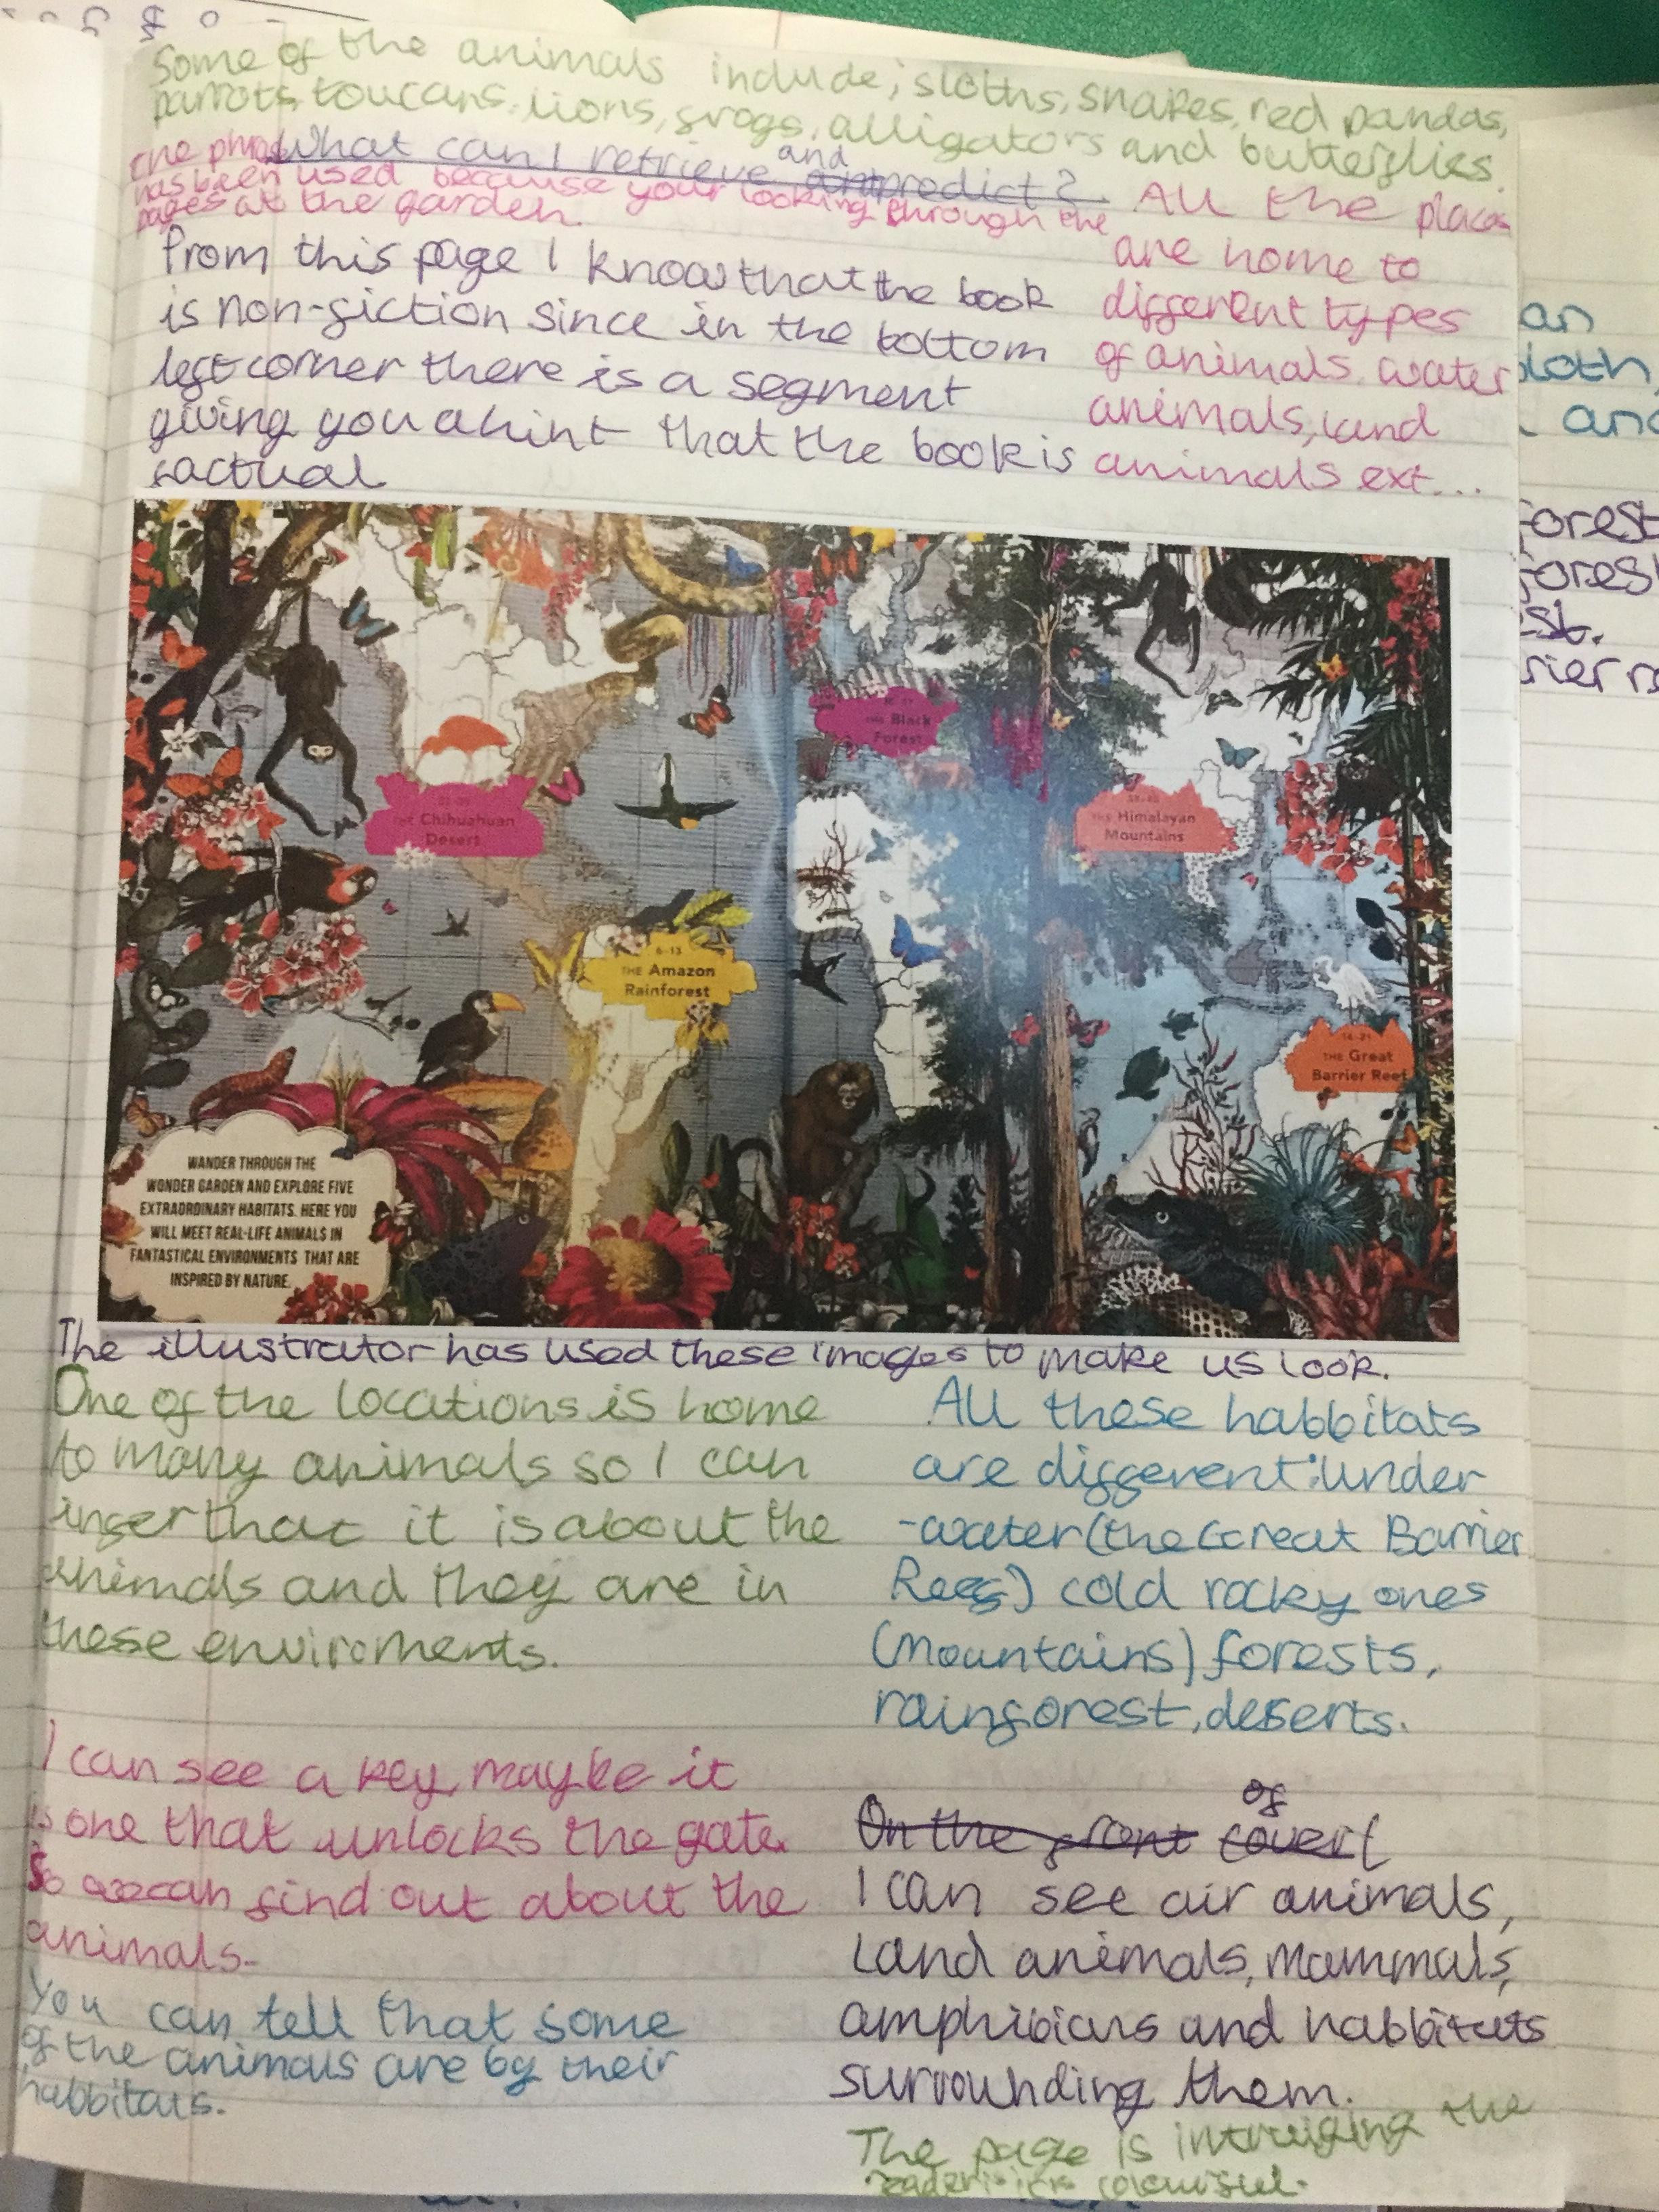 Some of the animals include; sloths, snakes, red pandas,
parrots, toucans, lions, frogs, alligators and butterflies.
What can I retrieve and predict?
The phrase
has been used because your looking through the
pages at the garden.
All the places
are home to
different types
of animals. water
animals, land
animals ext...
From this page I know that the book
is non-fiction since in the bottom
left corner there is a segment
giving you a hint that the book is
factual
THE Black
Forest
THE Chihuahuan
Desert
THE Himalayan
Mountains
6-13
THE Amazon
Rainforest
14-21
THE Great
Barrier Reef
WANDER THROUGH THE
WONDER GARDEN AND EXPLORE FIVE
EXTRAORDINARY HABITATS. HERE YOU
WILL MEET REAL-LIFE ANIMALS IN
FANTASTICAL ENVIRONMENTS THAT ARE
INSPIRED BY NATURE.
The illustrator has used these images to make us look.
One of the locations is home
to many animals so I can
infer that it is about the
animals and they are in
these enviroments.
All these habbitats
are different: under
-water (the Great Barrier
Reef) cold rocky ones
(mountains) forests,
rainforest, deserts.
I can see a key, maybe it
is one that unlocks the gate
so we can find out about the
animals.
You can tell that some
of the animals are by their
habbitats.
On the front of cover (
I can see air animals,
land animals, mammals,
amphibians and habbitats
surrounding them.
The page is intruiging the
an
sloth,
and
forest
forest
st.
rier